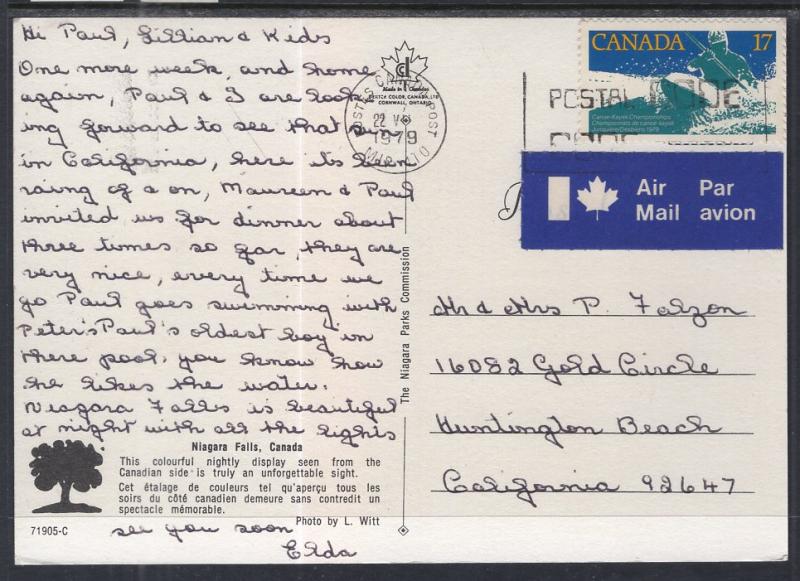 Hi Paul, Lillian & Kids
One more week, and home
again, Paul & I are look
ing forward to see that sun
in California, here its been
raing of a on, Maureen & Paul
invited us for dinner about
three times so far, they are
very nice, every time we
go Paul goes swimming with
Peter's Paul's oldest boy in
there pool, you know how
he likes the water.
Niagara Falls is beautiful
at night with all the lights
Niagara Falls, Canada
This colourful nightly display seen from the
Canadian side is truly an unforgettable sight.
Cet étalage de couleurs tel qu'aperçu tous les
soirs du côté canadien demeure sans contredit un
spectacle mémorable.
Photo by L. Witt
71905-C
see you soon
Elda
The Niagara Parks Commission
Made in Canada
CORNWALL, ONTARIO
POSTES CANADA POST
22
1979
POSTAL CODE
CANADA 17
Canoe-Kayak Championships
Championnats de canoë-kayak
Jonquière/Desbiens 1979
Air Par
Mail avion
Mr & Mrs P. Falzon
16082 Gold Circle
Huntington Beach
California 92647